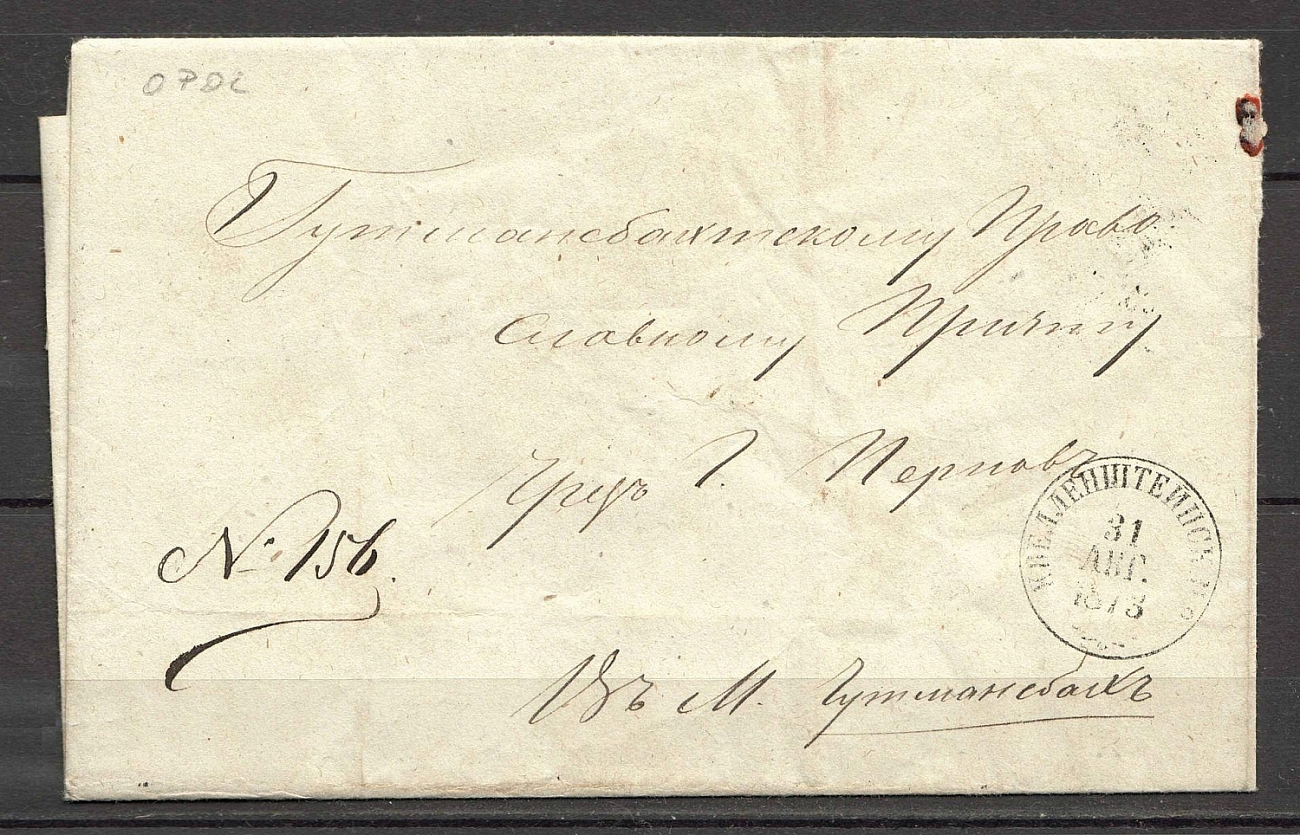 Гутмансбахтскому Право
славному Причту
Чрезъ Г. Перновъ
№ 156.
31
АВГ.
1873
Въ М. Гутмансбахъ